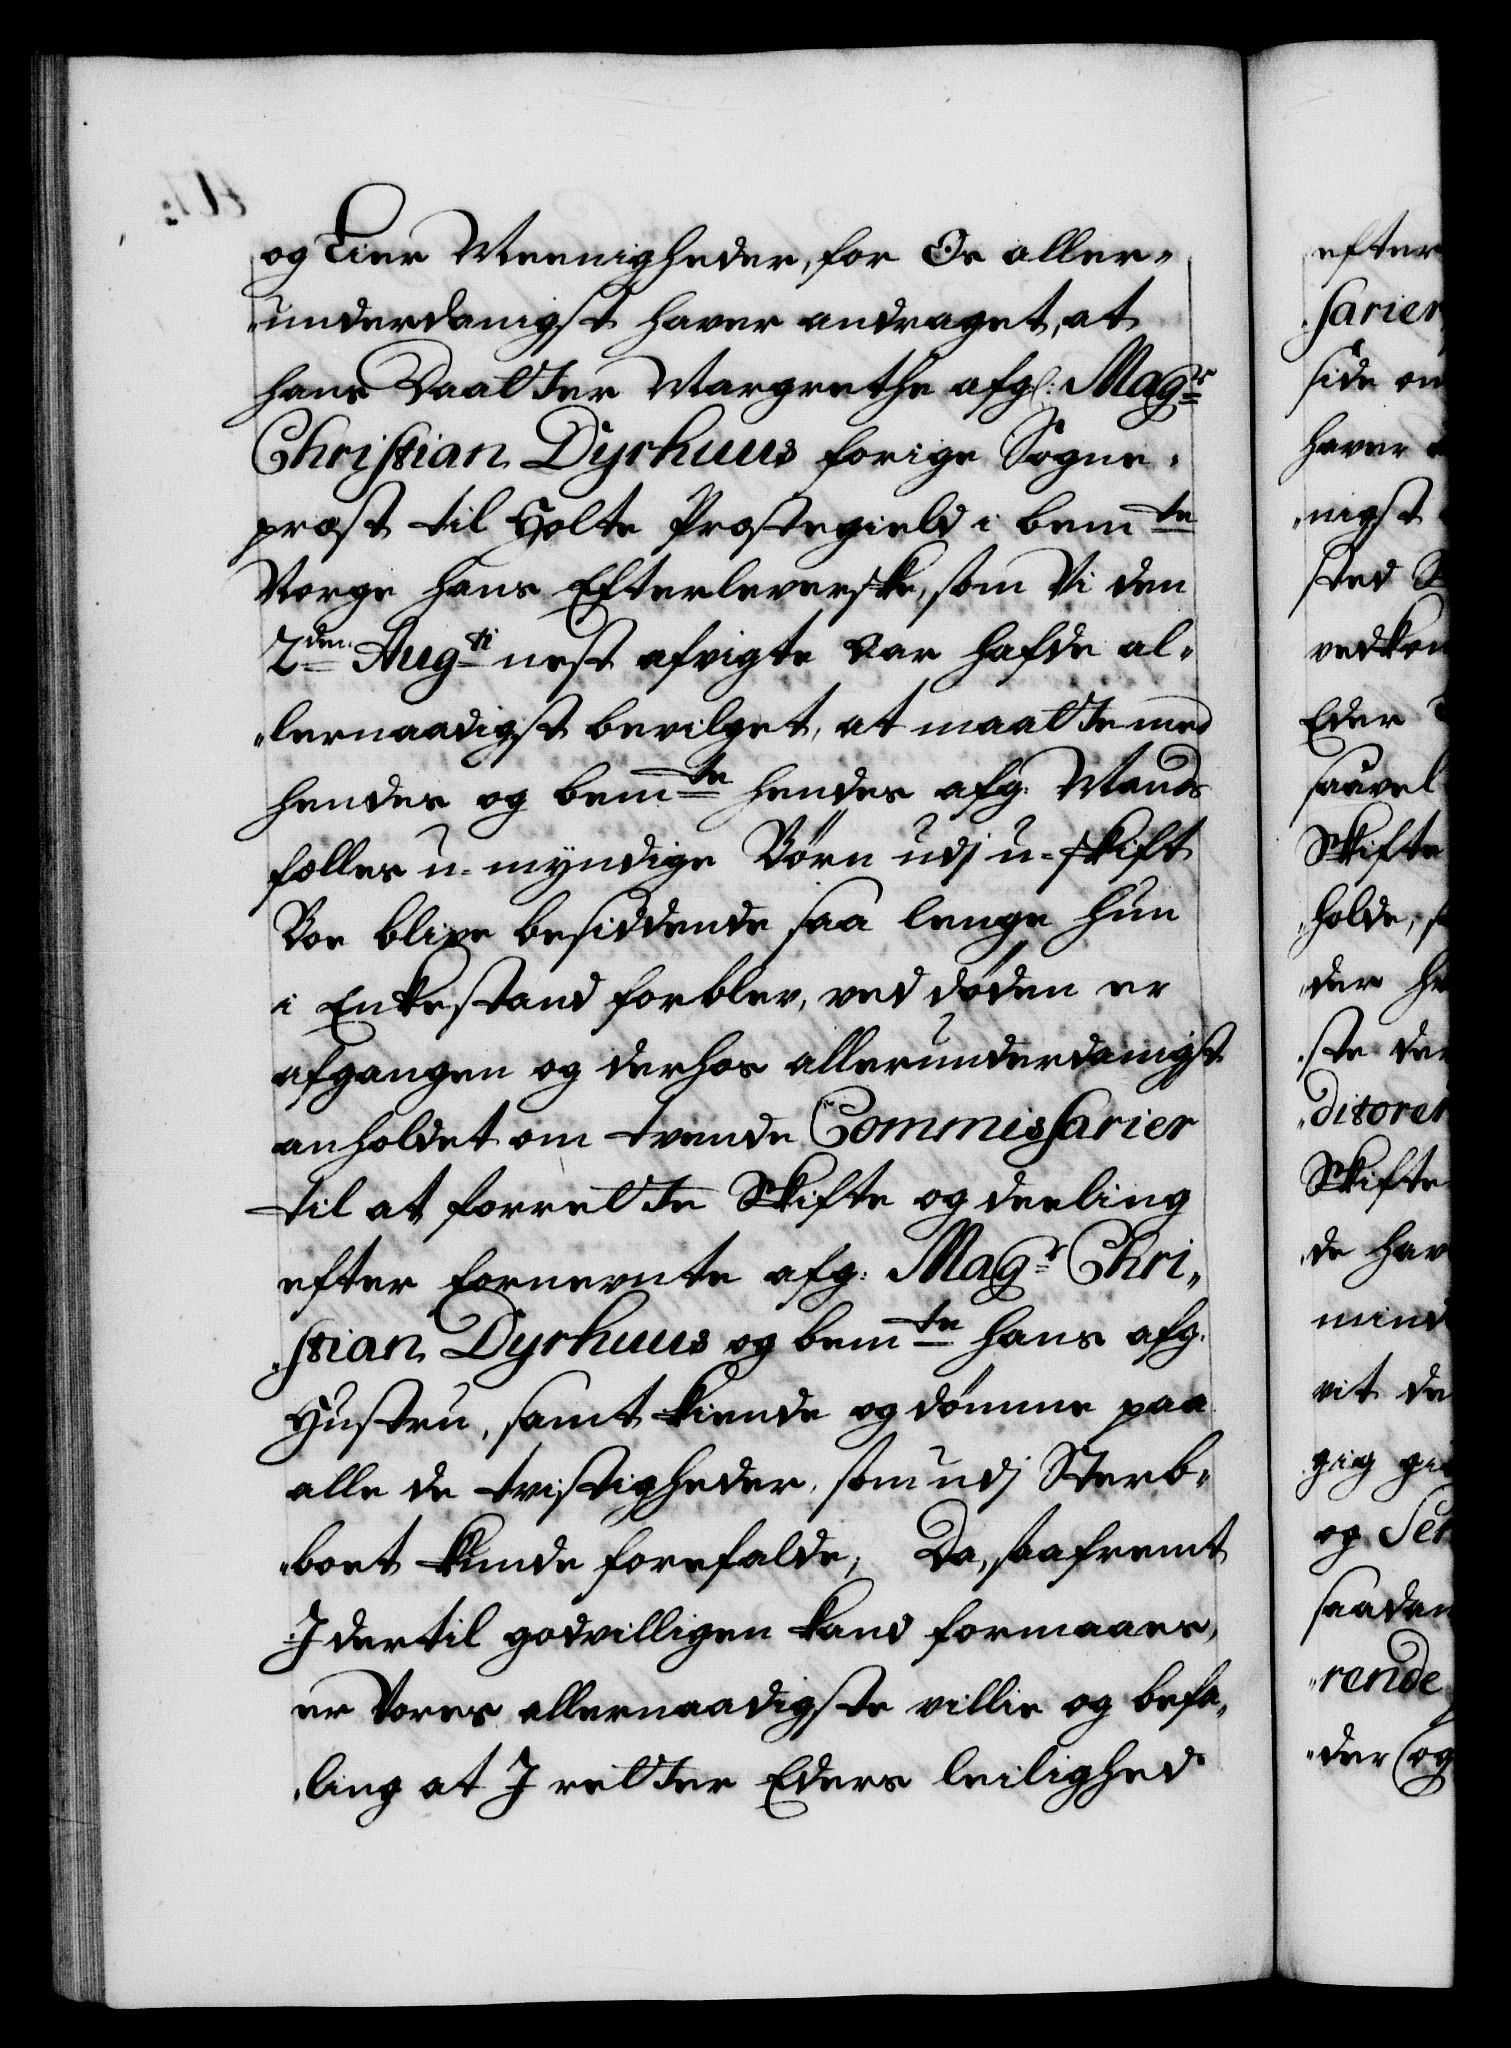 og Eier Meenigheder, for Os aller-
underdanigst haver andraget, at
hans Daatter Margrethe afg: Magr
Christian Dyrhuus forige Sogne-
præst til Holte Præstegield i bemte
Norge hans Efterleverske, som Vi den
2den Augti nest afvigte Aar hafde al-
lernaadigst bevilget, at maatte med
hendes og bemte hendes afg: Mands
fælles u-myndige Børn udj u-skift
Boe blive besiddende saa lenge hun
i Enkestand forblev, ved døden er
afgangen og derhos allerunderdanigst
anholdet om tvende Commissarier
til at forrette Skifte og deeling
efter fornevnte afg: Magr Chri-
stian Dyrhuus og bemte hans afg:
Hustru, samt kiende og dømme paa
alle de tvistigheder, som udj Sterb-
boet kunde forefalde; Da, saafremt
I dertil godvilligen kand formaaes,
er Vores allernaadigste villie og befa-
ling at I retter Eders leilighed
efter
sarier
side on
haver
nigst
sted
vedkom
Eder
saavel
Skifte
holde, s
der
ste der
ditorer
Skifte
de hav
mind
vit de
gig gi
og Se
saadan
rende
der og